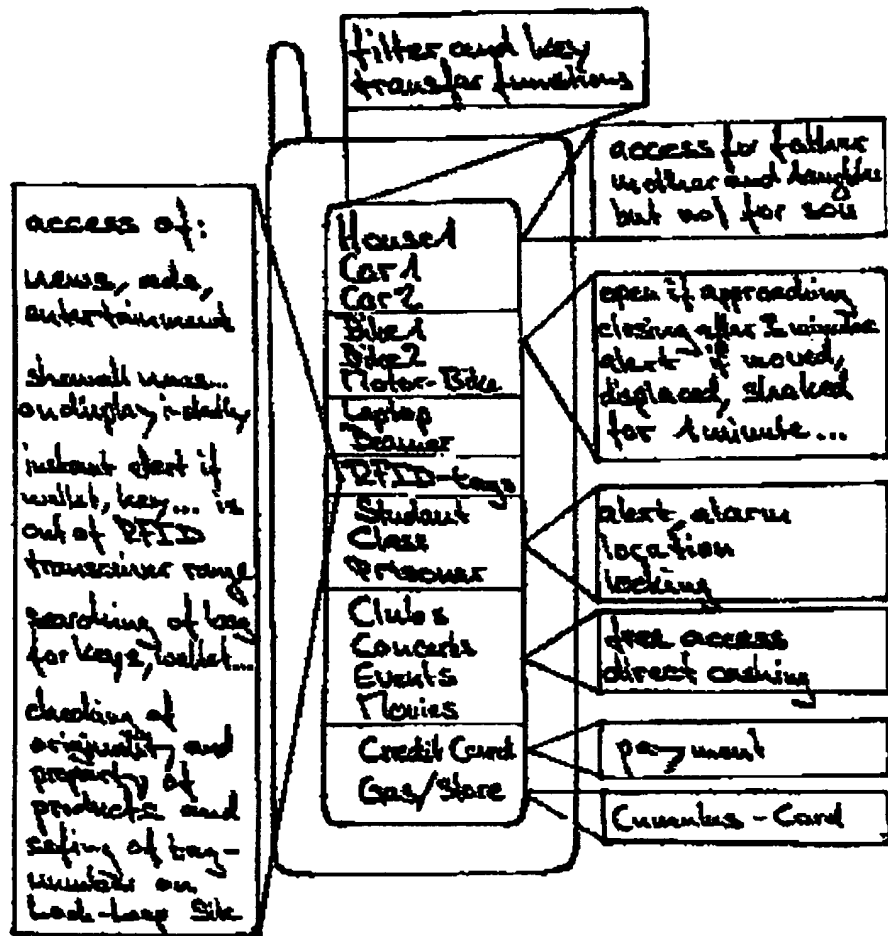 filter and key
transfar functions
access for father
mother and daughter
but not for son
access of:
news, ads,
entertainment
on display
instant alert if
wallet, key... is
out of RFID
transceiver range
searching of bag
for keys, wallet...
checking of
originality and
property of
products and
safing of tag-
number on
Site
House1
Car1
Car2
Bike1
Bike2
Motor-Bike
Laptop
Beamer
RFID-tags
Student
Class
Prisoner
Clubs
Concerts
Events
Movies
Credit Card
Gas/Store
open if approaching
closing after minutes
alert if moved,
displaced, shaked
for 1 minute...
alert, alarm
location
locking
free access
direct cashing
payment
Cumulus-Card